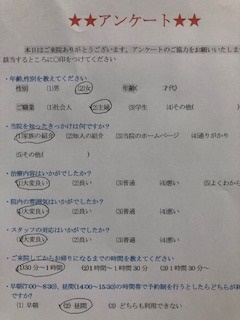 ★★アンケート★★
本日はご来院ありがとうございます。アンケートのご協力をお願いいたしま
該当するところに○印をつけてください
・年齢,性別を教えてください
性別 (1)男 (2)女 年齢( 才代)
ご職業 (1)社会人 (2)主婦 (3)学生 (4)その他(
・当院を知ったきっかけは何ですか?
(1)家族の紹介 (2)知人の紹介 (3)当院のホームページ (4)通りがかり
(5)その他( )
・治療内容はいかがでしたか?
(1)大変良い (2)良い (3)普通 (4)悪い (5)よくわから
・院内の雰囲気はいかがでしたか?
(1)大変良い (2)良い (3)普通 (4)悪い
・スタッフの対応はいかがでしたか?
(1)大変良い (2)良い (3)普通 (4)悪い
・ご来院してからお帰りになるまでの時間を教えてください
(1)30分~1時間 (2)1時間~1時間30分 (3)1時間30分~
・早朝(7:00~8:30)、昼間(14:00~15:30)の時間帯で予約制を行うとしたらどちらが
ですか?
(1) 早朝 (2) 昼間 (3) どちらも利用できない